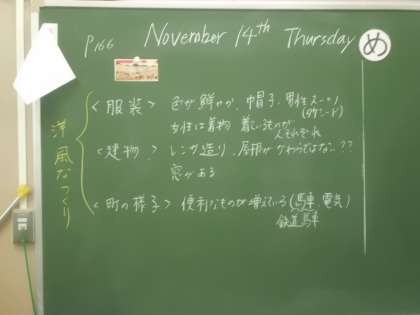 P166 November 14th Thursday
め
洋風なつくり
<服装> 色が鮮やか、帽子、男性スーツ
(タキシード)
女性は着物 着ているものが
人それぞれ
<建物> レンガ造り、屋根がかわらではない??
窓がある
<町の様子> 便利なものが増えている(馬車、電気)
鉄道馬車